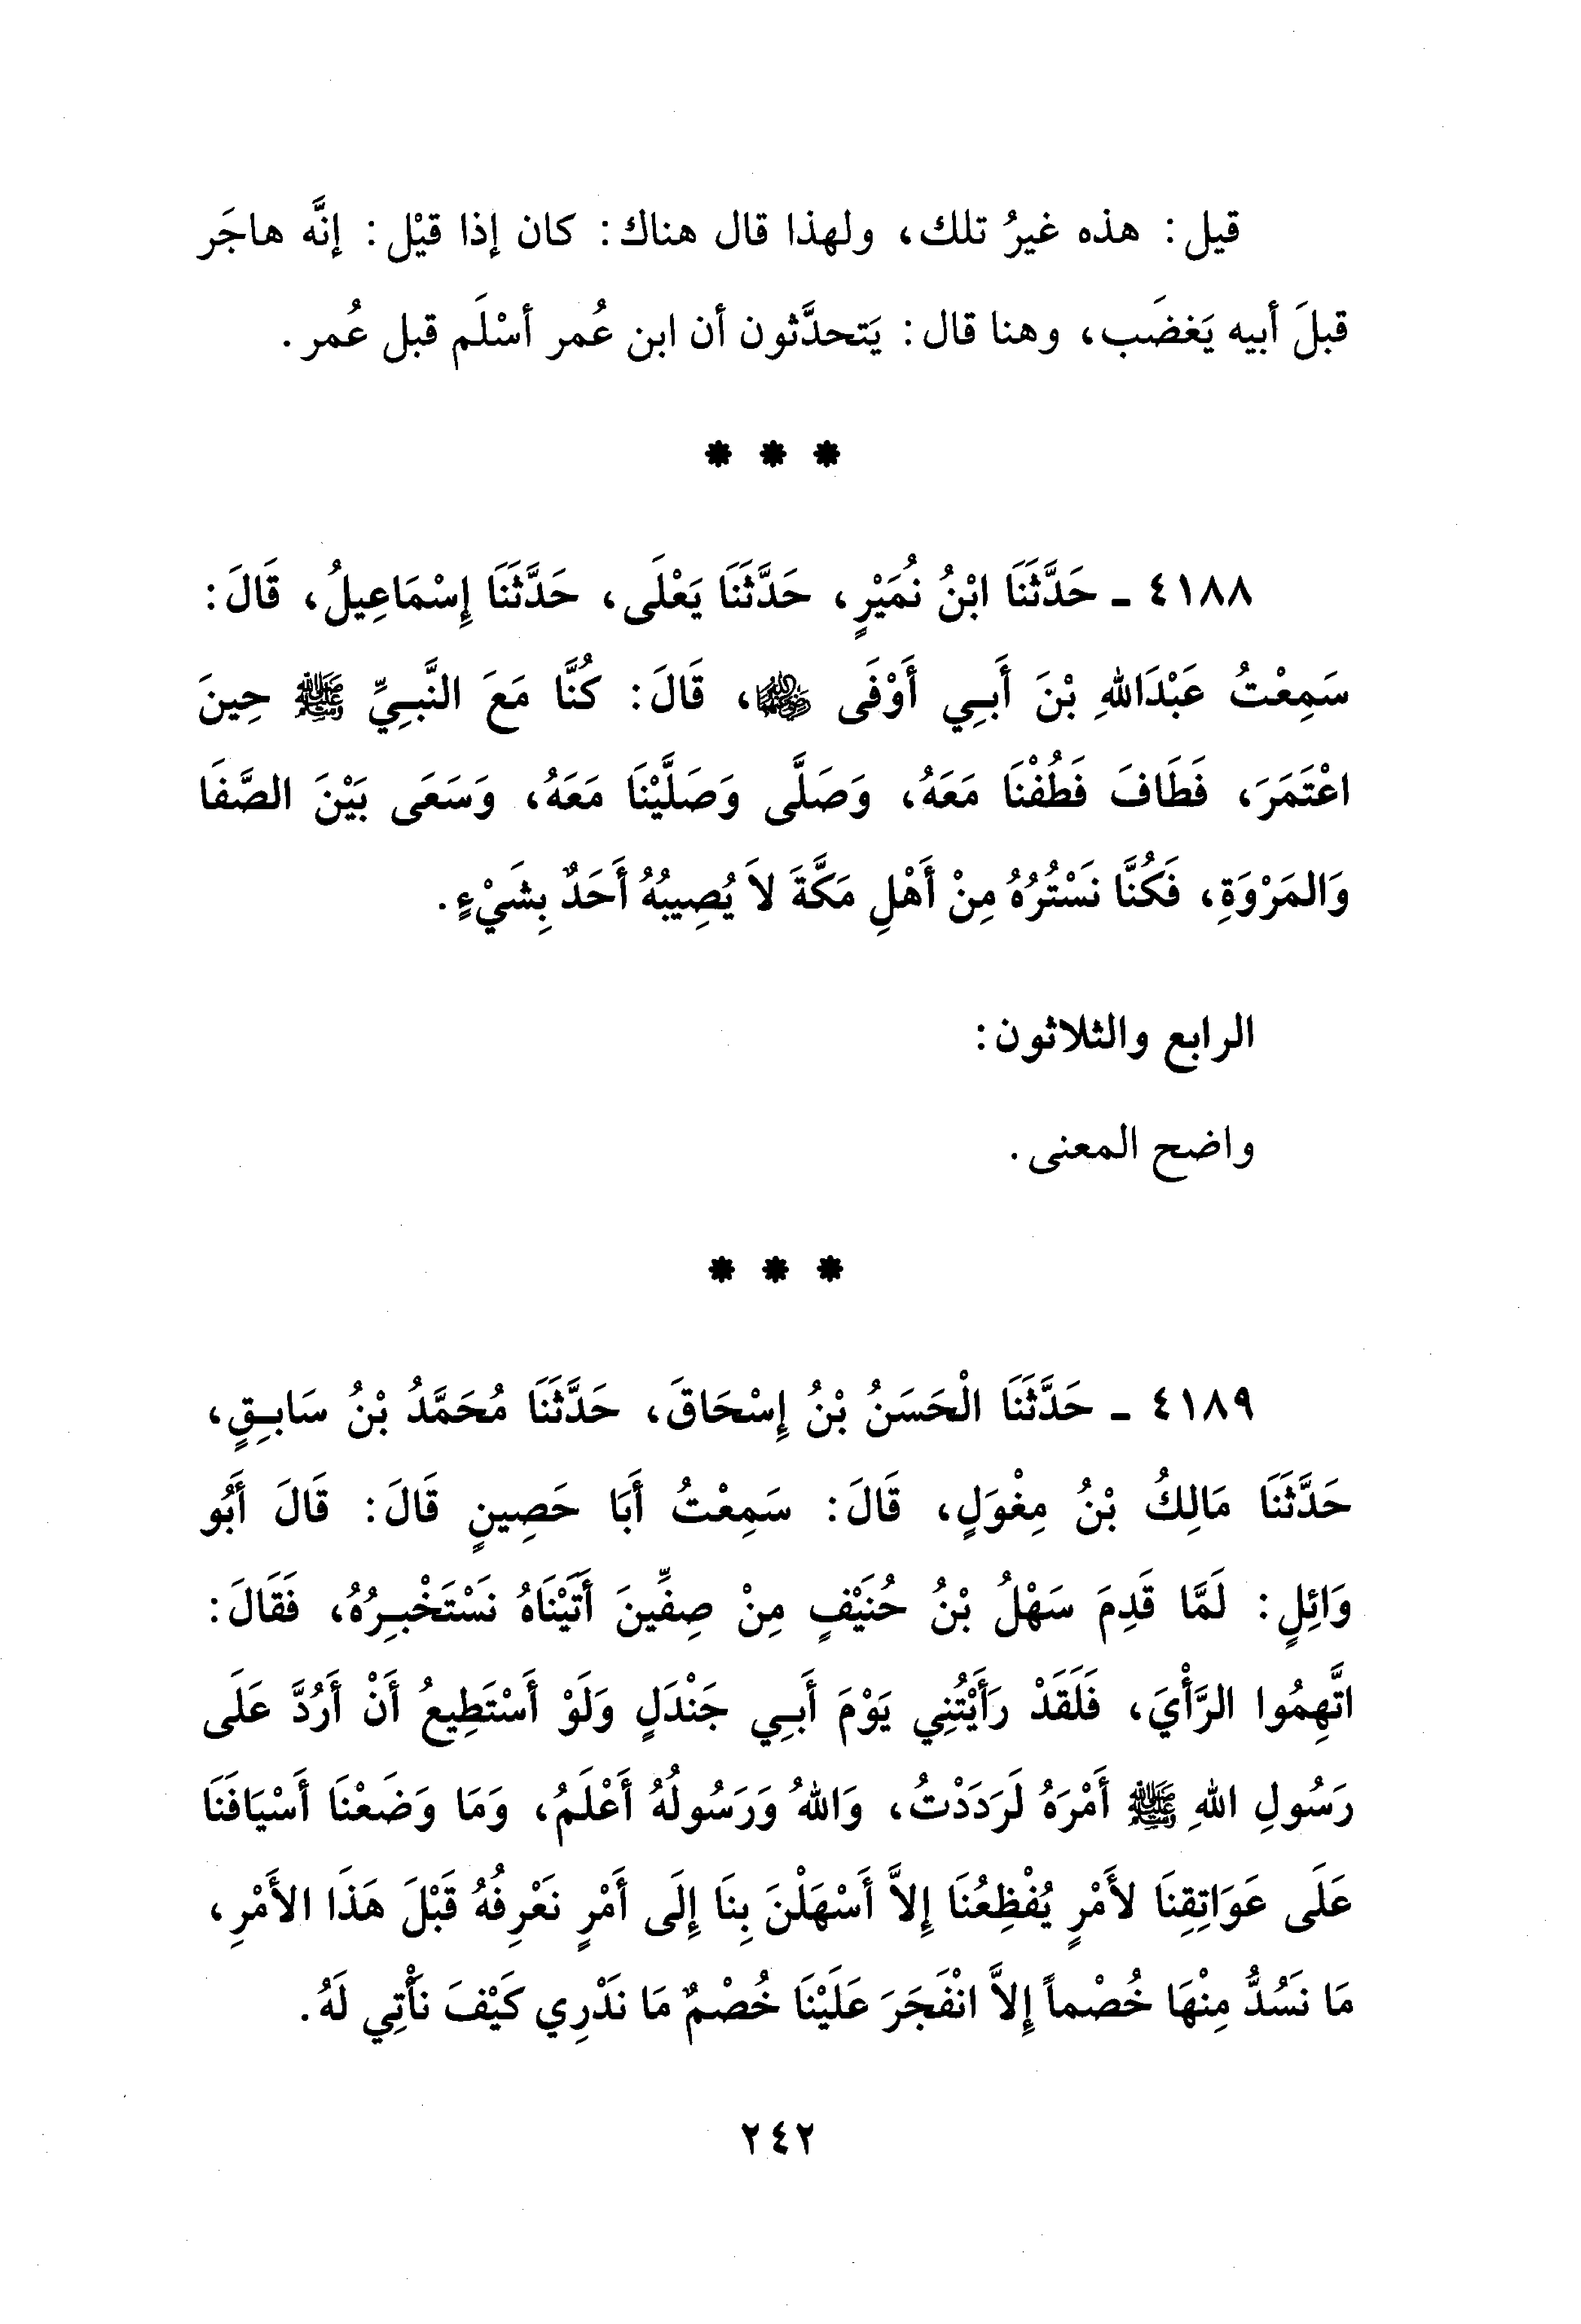 قيل: هذه غيرُ تلك، ولهذا قال هناك: كان إذا قيْل: إنَّه هاجَر
قبلَ أبيه يَغضَب، وهنا قال: يَتحدَّثون أن ابن عُمر أسْلَم قبل عُمر.
* * *
٤١٨٨ ـ حَدَّثَنَا ابْنُ نُمَيْرٍ، حَدَّثَنَا يَعْلَى، حَدَّثَنَا إِسْمَاعِيلُ، قَالَ:
سَمِعْتُ عَبْدَاللهِ بْنَ أَبِي أَوْفَى ﵄، قَالَ: كُنَّا مَعَ النَّبِيِّ ﷺ حِينَ
اعْتَمَرَ، فَطَافَ فَطُفْنَا مَعَهُ، وَصَلَّى وَصَلَّيْنَا مَعَهُ، وَسَعَى بَيْنَ الصَّفَا
وَالمَرْوَةِ، فَكُنَّا نَسْتُرُهُ مِنْ أَهْلِ مَكَّةَ لاَ يُصِيبُهُ أَحَدٌ بِشَيْءٍ.
الرابع والثلاثون:
واضح المعنى.
* * *
٤١٨٩ ـ حَدَّثَنَا الْحَسَنُ بْنُ إِسْحَاقَ، حَدَّثَنَا مُحَمَّدُ بْنُ سَابِقٍ،
حَدَّثَنَا مَالِكُ بْنُ مِغْوَلٍ، قَالَ: سَمِعْتُ أَبَا حَصِينٍ قَالَ: قَالَ أَبُو
وَائِلٍ: لَمَّا قَدِمَ سَهْلُ بْنُ حُنَيْفٍ مِنْ صِفِّينَ أَتَيْنَاهُ نَسْتَخْبِرُهُ، فَقَالَ:
اتَّهِمُوا الرَّأْيَ، فَلَقَدْ رَأَيْتُنِي يَوْمَ أَبِي جَنْدَلٍ وَلَوْ أَسْتَطِيعُ أَنْ أَرُدَّ عَلَى
رَسُولِ اللهِ ﷺ أَمْرَهُ لَرَدَدْتُ، وَاللهُ وَرَسُولُهُ أَعْلَمُ، وَمَا وَضَعْنَا أَسْيَافَنَا
عَلَى عَوَاتِقِنَا لأَمْرٍ يُفْظِعُنَا إِلاَّ أَسْهَلْنَ بِنَا إِلَى أَمْرٍ نَعْرِفُهُ قَبْلَ هَذَا الأَمْرِ،
مَا نَسُدُّ مِنْهَا خُصْماً إِلاَّ انْفَجَرَ عَلَيْنَا خُصْمٌ مَا نَدْرِي كَيْفَ نَأْتِي لَهُ.
٢٤٢